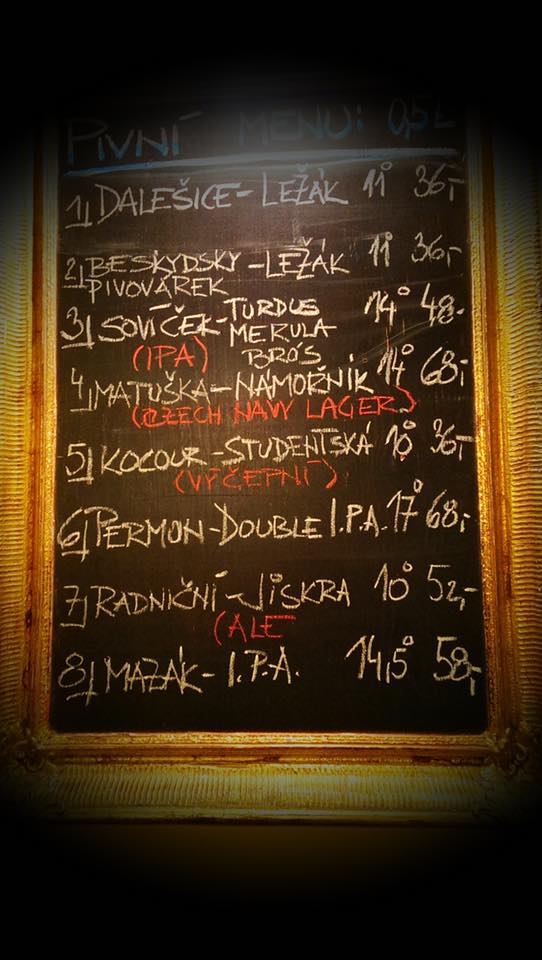 PIVNÍ MENU: 0,5L
1) DALEŠICE - LEŽÁK 11° 36,-
2) BESKYDSKÝ - LEŽÁK 11° 36,-
PIVOVÁREK
3) SOVÍČEK - TURDUS 14° 48-
MERULA
(IPA) BRO'S
4) MATUŠKA - NÁMOŘNÍK 14° 68,-
(CZECH NAVY LAGER)
5) KOCOUR - STUDENTSKÁ 10° 36,-
(VÝČEPNÍ)
6) PERMON - DOUBLE I.P.A. 17° 68,-
7) RADNIČNÍ - JISKRA 10° 52,-
(ALE
8) MAZÁK - I.P.A. 14,5° 58,-